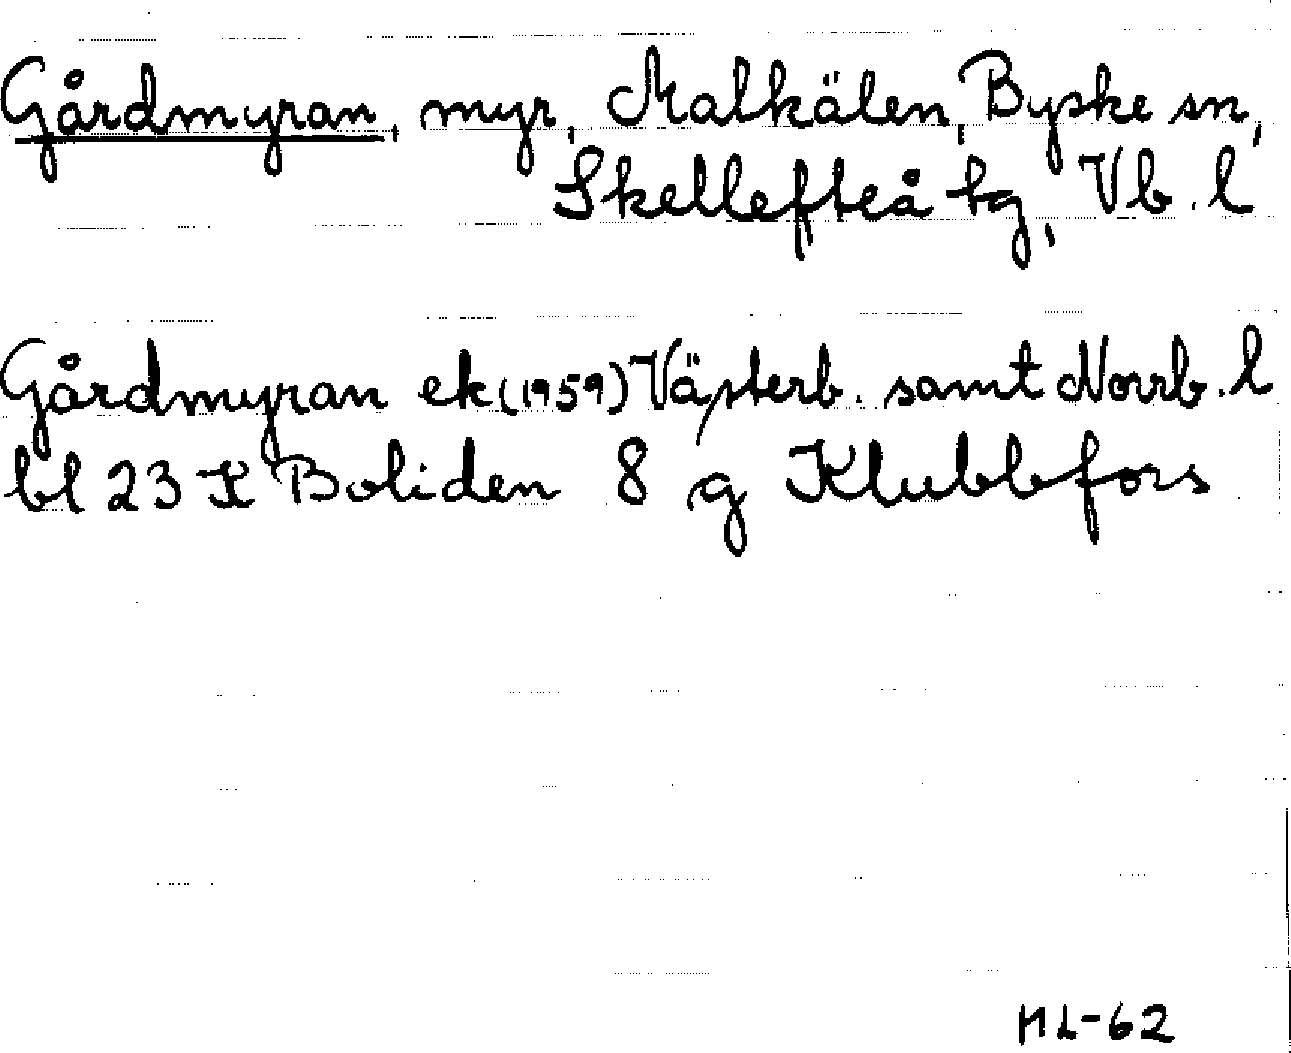 Gårdmyran, myr, Malkälen, Byske sn,
Skellefteå tg, Vb. l
Gårdmyran ek (1959) Västerb. samt Norrb. l
bl 23 K Boliden 8 g Klubbfors
HL-62